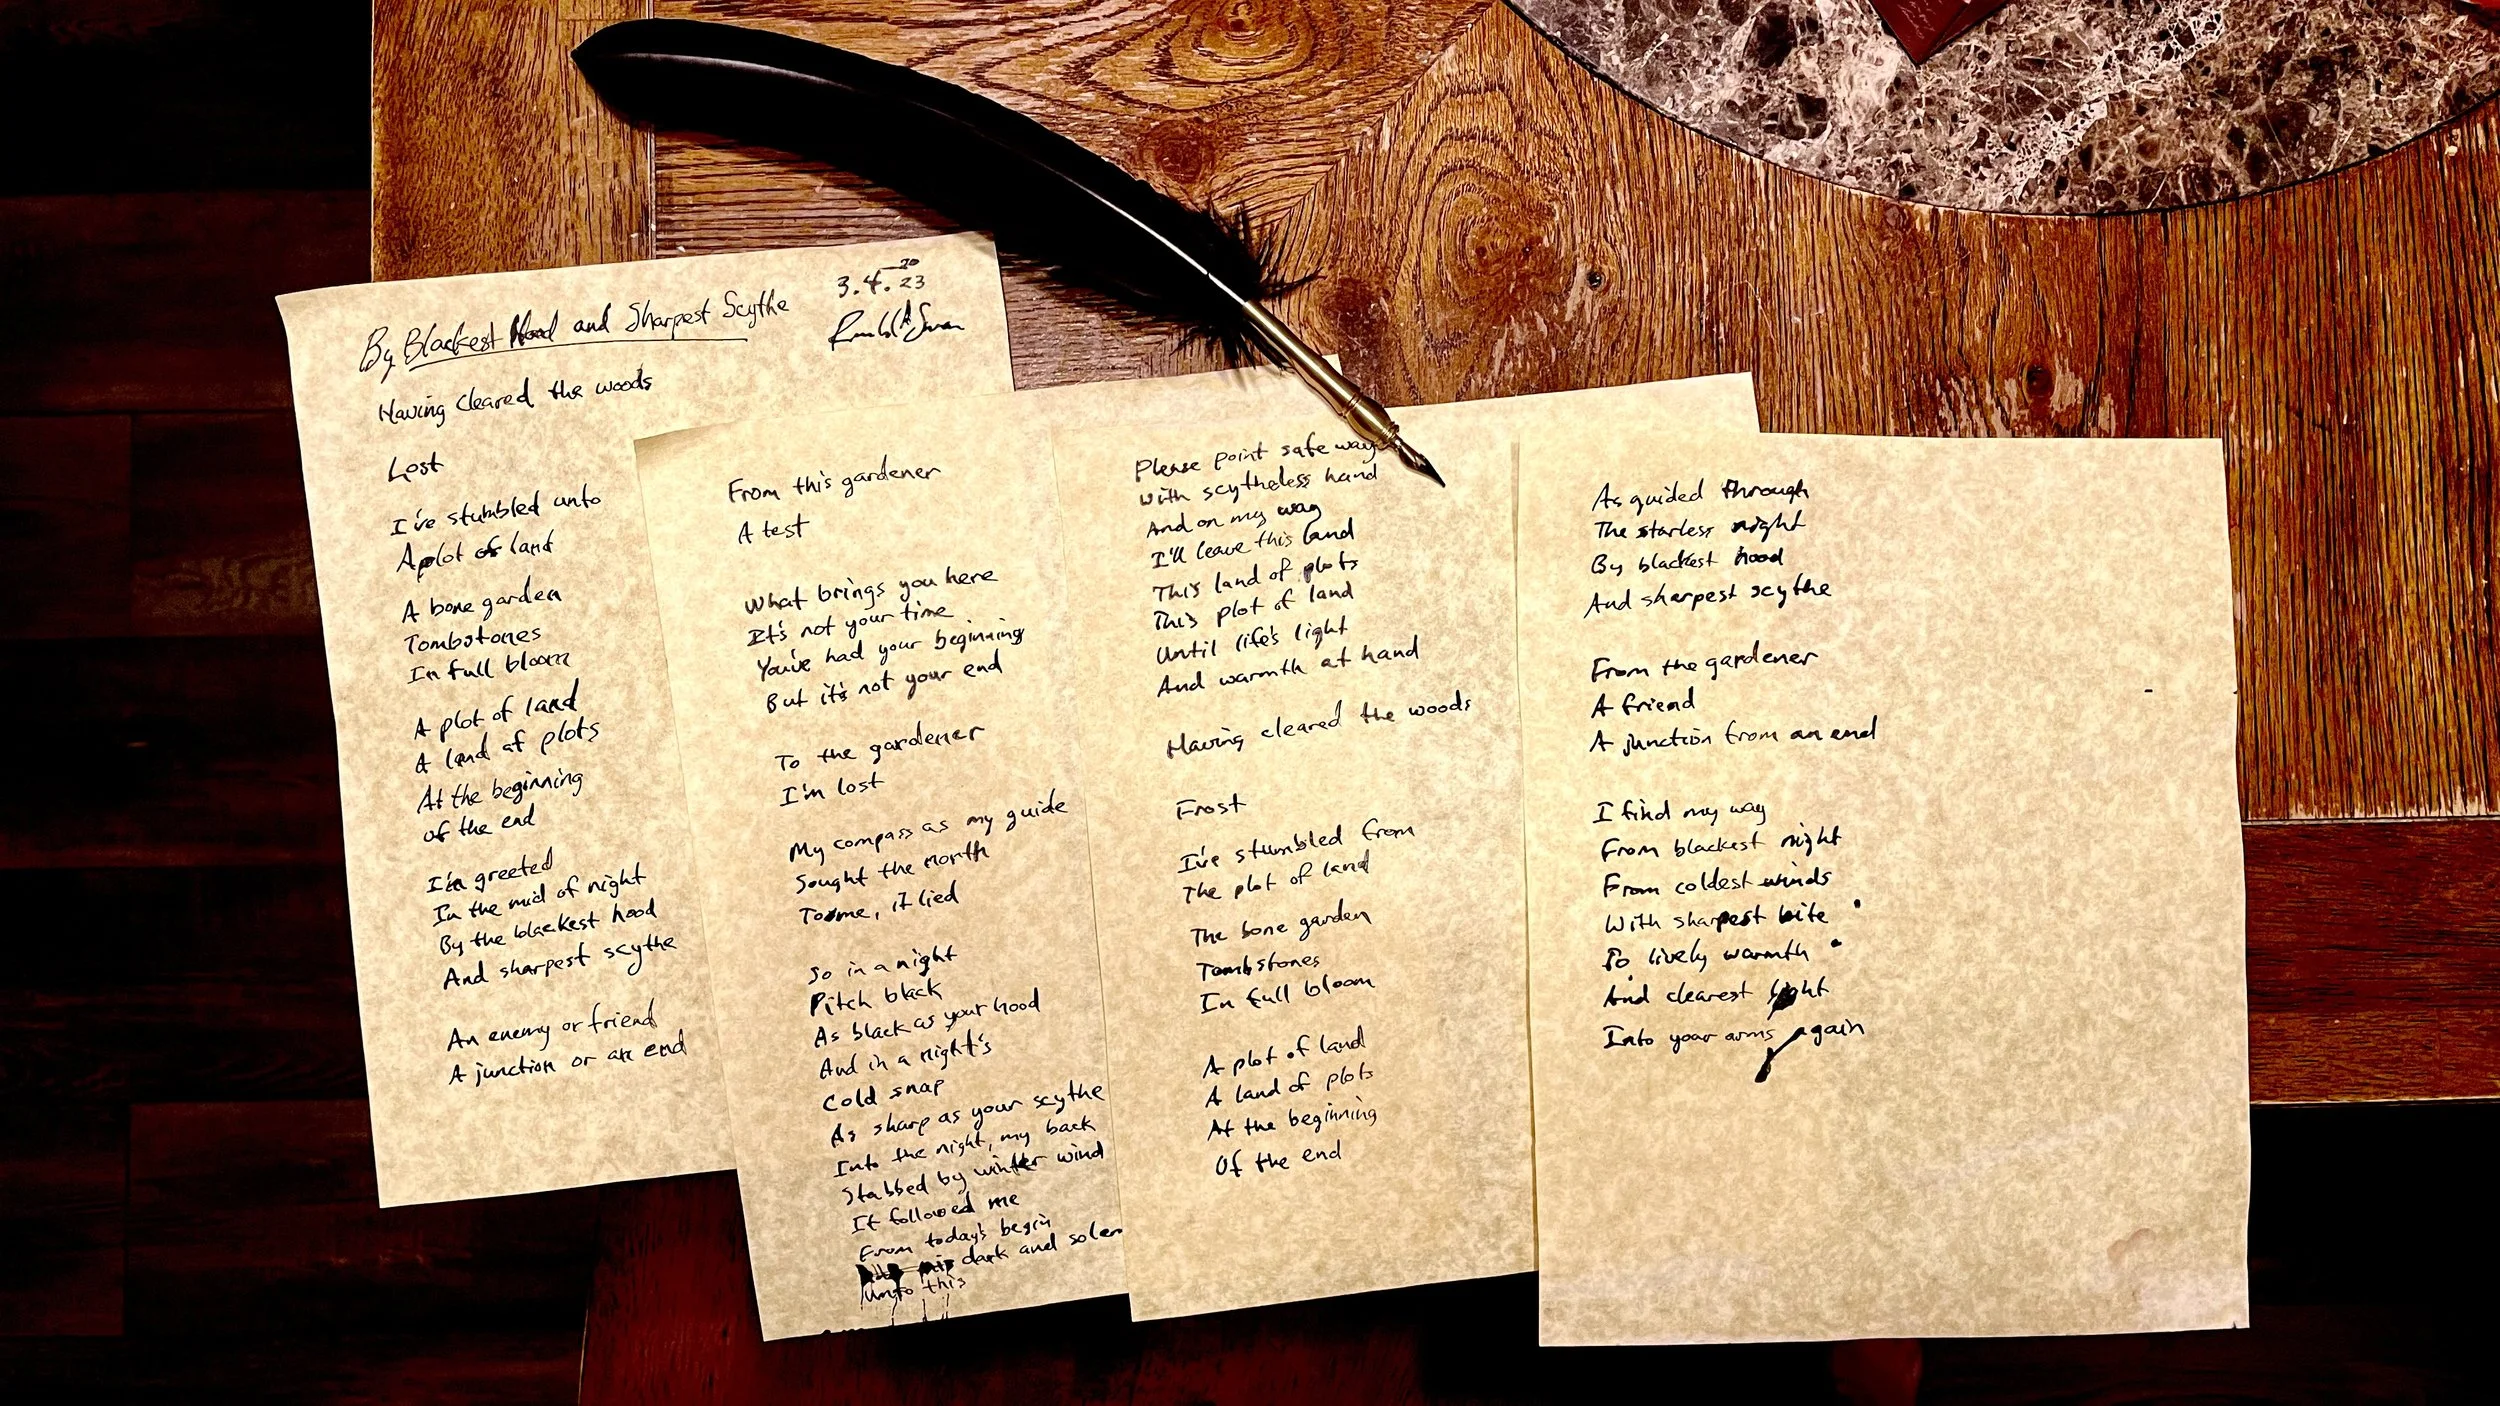 By Blackest Hood and Sharpest Scythe
3.4.20 23
Having cleared the woods
Lost
I've stumbled unto
A plot of land
A bone garden
Tombstones
In full bloom
A plot of land
A land of plots
At the beginning
of the end
I'm greeted
In the mid of night
By the blackest hood
And sharpest scythe
An enemy or friend
A junction or an end
From this gardener
A test
What brings you here
It's not your time
You've had your beginning
But it's not your end
To the gardener
I'm lost
My compass as my guide
Sought the north
To me, it lied
So in a night
Pitch black
As black as your hood
And in a night's
Cold snap
As sharp as your scythe
Into the night, my back
Stabbed by winter wind
It followed me
From today's begin
dark and solem
unto this
Please point safe way
With scytheless hand
And on my way
I'll leave this land
This land of plots
This plot of land
Until life's light
And warmth at hand
Having cleared the woods
Frost
I've stumbled from
The plot of land
The bone garden
Tombstones
In full bloom
A plot of land
A land of plots
At the beginning
Of the end
As guided through
The starless night
By blackest hood
And sharpest scythe
From the gardener
A friend
A junction from an end
I find my way
From blackest night
From coldest winds
With sharpest bite
To lively warmth
And clearest light
Into your arms again